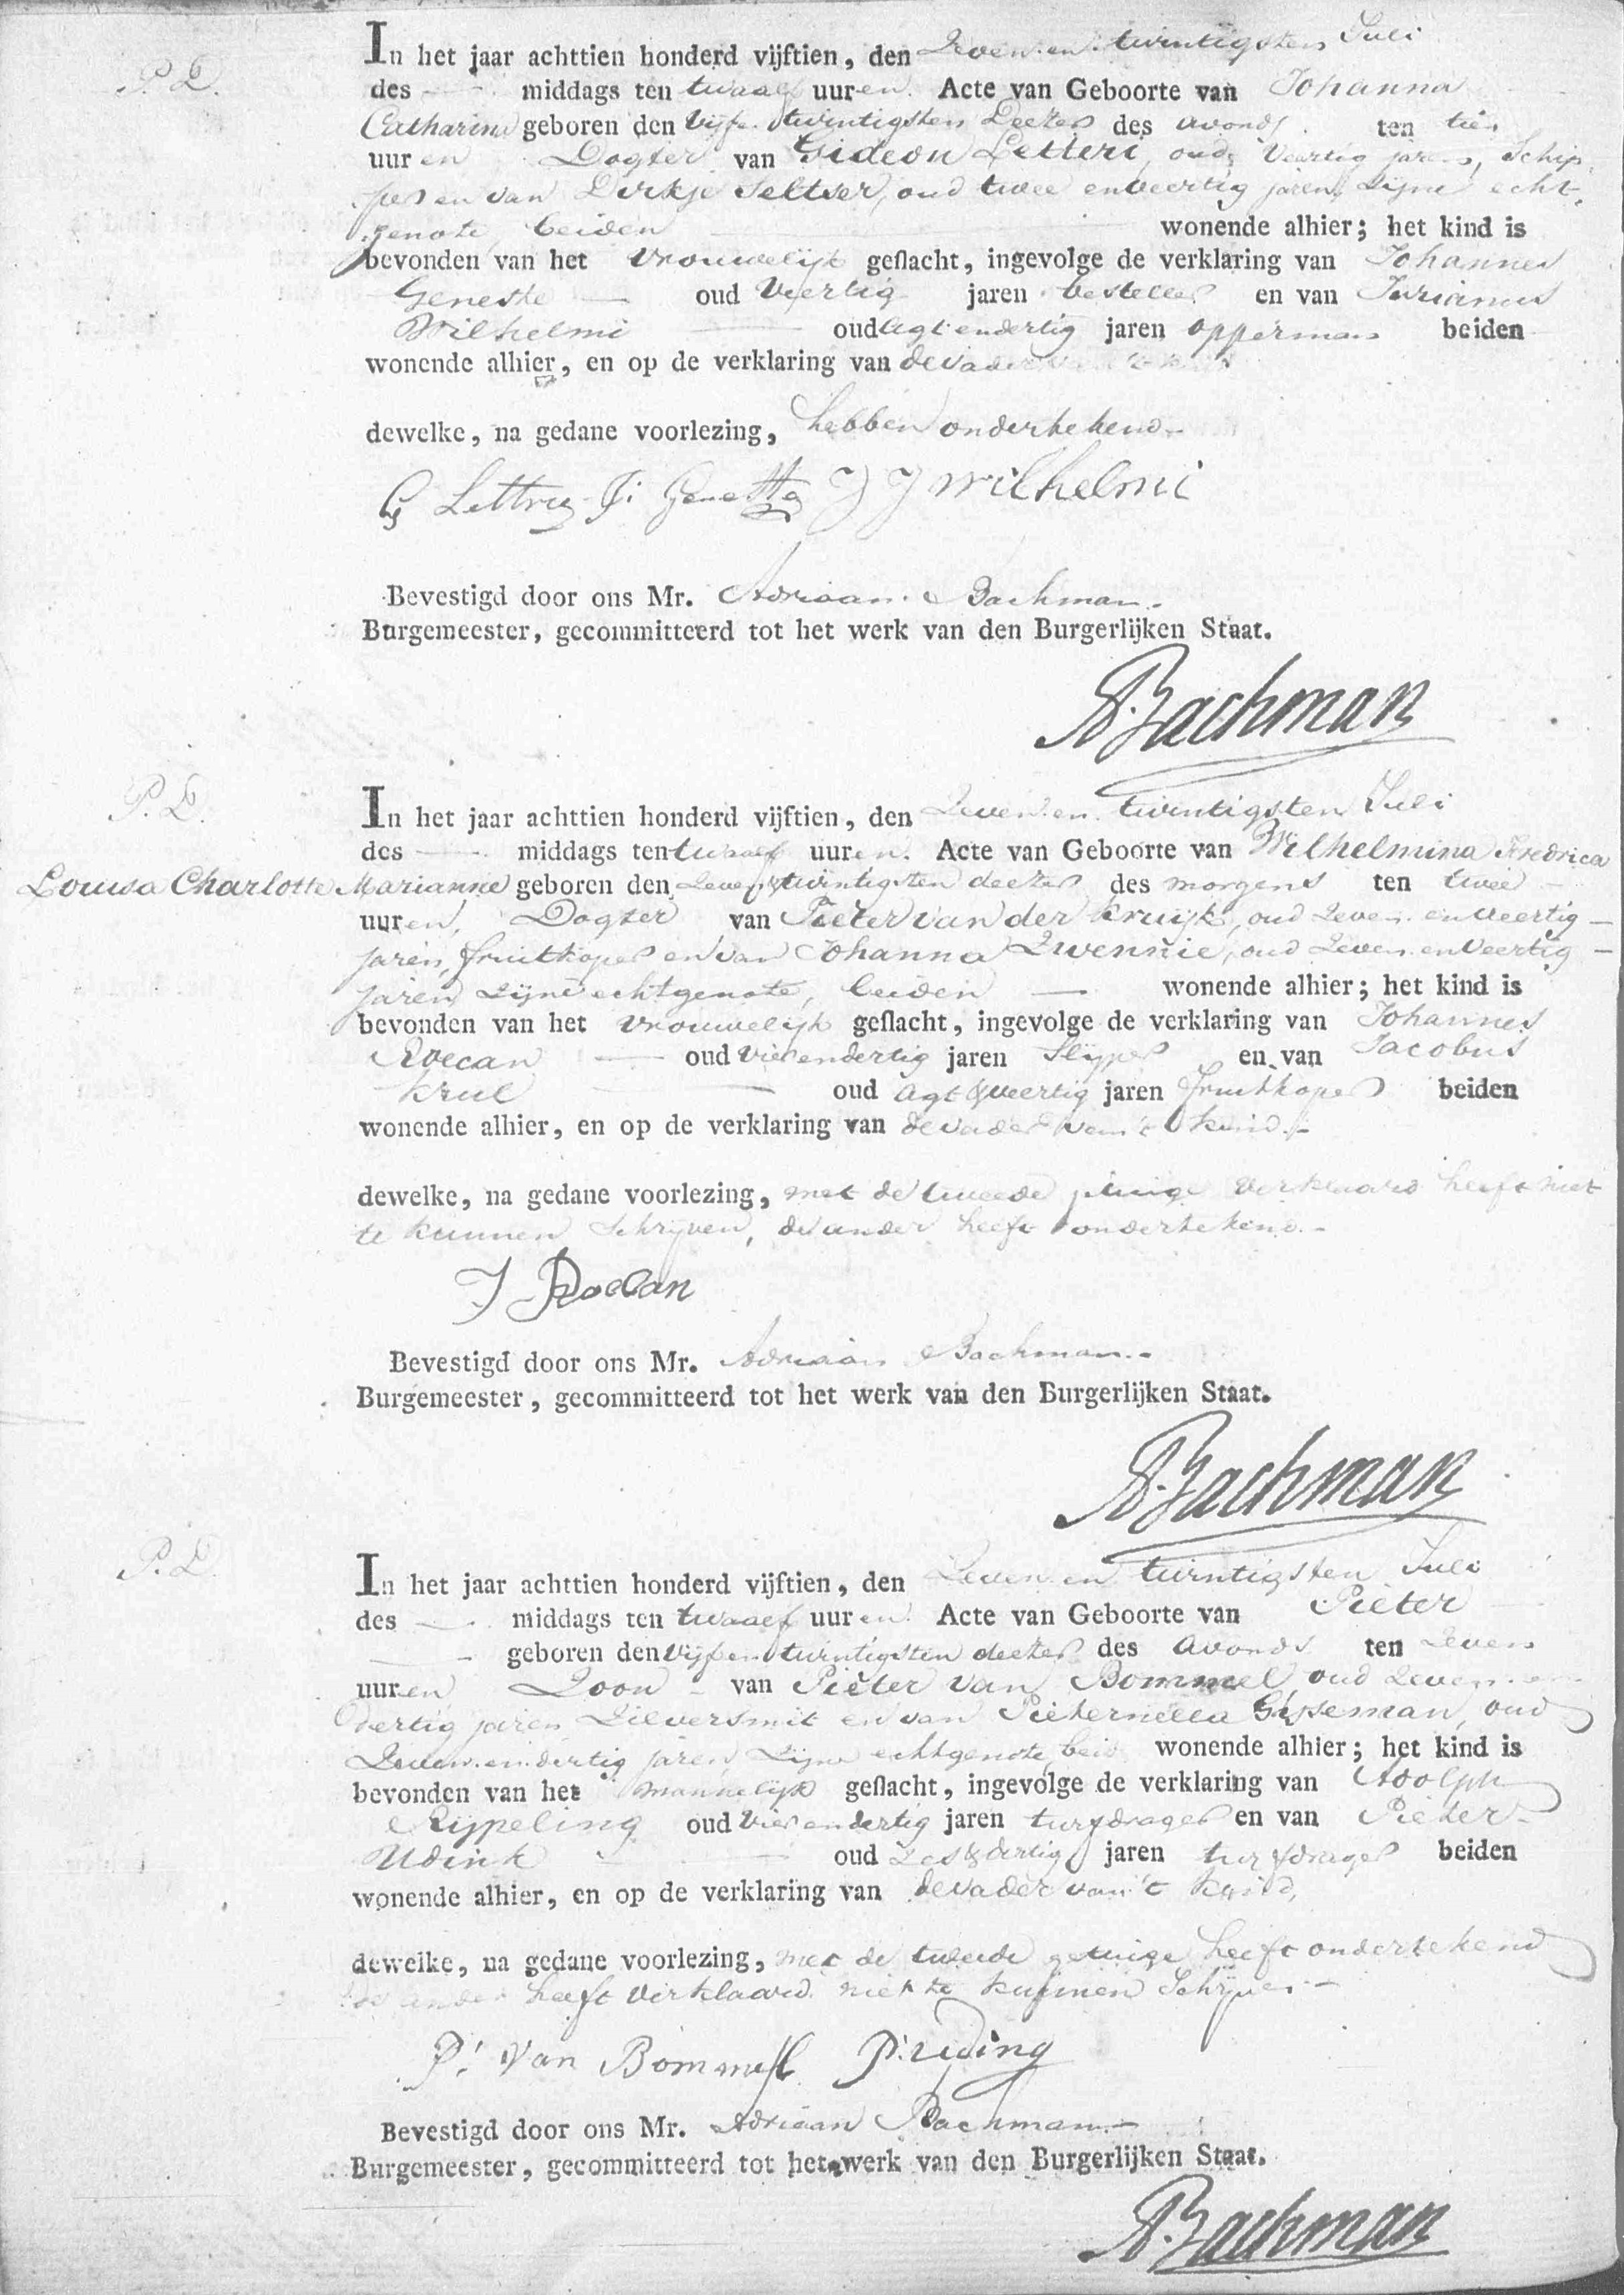 P. L.
In het jaar achttien honderd vijftien, den Zeven en twintigsten Juli
des middags ten twaalf uuren. Acte van Geboorte van Johanna
Catharina geboren den Vijf en twintigsten Dezer des avonds ten tien
uuren Dogter van Gideon Letteri, oud Veertig jaren, Schip-
per en van Dirkje Seltser, oud twee en veertig jaren, Zijne echt-
genote, beiden wonende alhier; het kind is
bevonden van het Vrouwelijk geslacht, ingevolge de verklaring van Johannes
Geneste oud Veertig jaren besteller en van Jurianus
Wilhelmi oud agt en dertig jaren opperman beiden
wonende alhier, en op de verklaring van de vader
dewelke, na gedane voorlezing, hebben ondertekend
G Lettry J: Genette J J Wilhelmi
Bevestigd door ons Mr. Adriaan Bachman.
Burgemeester, gecommitteerd tot het werk van den Burgerlijken Staat.
A. Bachman
P. L.
In het jaar achttien honderd vijftien, den Zeven en twintigsten Juli
des middags ten twaalf uuren. Acte van Geboorte van Wilhelmina Fredrica
Louisa Charlotte Marianne geboren den Zeven & twintigsten dezer des morgens ten twee
uuren, Dogter van Pieter van der Kruijk, oud Zeven en veertig
jaren, fruitkoper en van Johanna Zwennie, oud Zeven en Veertig
jaren Zijne echtgenote, beiden wonende alhier; het kind is
bevonden van het Vrouwelijk geslacht, ingevolge de verklaring van Johannes
Roecan oud Vier en dertig jaren Slijper en van Jacobus
Krul oud agt & veertig jaren fruitkoper beiden
wonende alhier, en op de verklaring van de vader van 't kind.
dewelke, na gedane voorlezing, met de tweede getuige Verklaard heeft niet
te kunnen Schrijven, de ander heeft ondertekend.
J Roecan
Bevestigd door ons Mr. Adriaan Bachman.
Burgemeester, gecommitteerd tot het werk van den Burgerlijken Staat.
A. Bachman
P. L.
In het jaar achttien honderd vijftien, den Zeven en twintigsten Juli
des middags ten twaalf uuren. Acte van Geboorte van Pieter
geboren den Vijf en twintigsten dezer des Avonds ten Zeven
uuren Zoon van Pieter Van Bommel oud Zeven en
dertig jaren Zilversmit en van Pieternella Gijseman, oud
Zeven en dertig jaren, Zijne echtgenote, beid wonende alhier; het kind is
bevonden van het mannelijk geslacht, ingevolge de verklaring van Adolph
Rijpeling oud Vier en dertig jaren turfdrager en van Pieter
Udink oud Zes & dertig jaren turfdrager beiden
wonende alhier, en op de verklaring van de vader van 't kind,
dewelke, na gedane voorlezing, met de tweede getuige heeft ondertekend
de ander heeft Verklaard niet te kunnen Schrijven
P: Van Bommel P: uding
Bevestigd door ons Mr. Adriaan Bachman
Burgemeester, gecommitteerd tot het werk van den Burgerlijken Staat.
A. Bachman